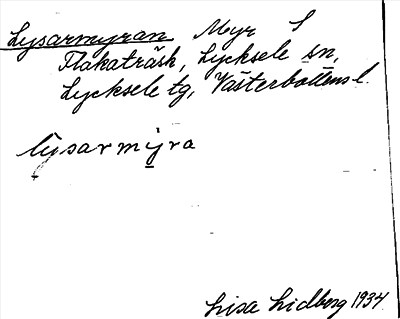 Lysarmyran Myr S
Flakaträsk, Lycksele sn,
Lycksele tg, Västerbottens l.
lysarmyra
Lisa Lidberg 1934